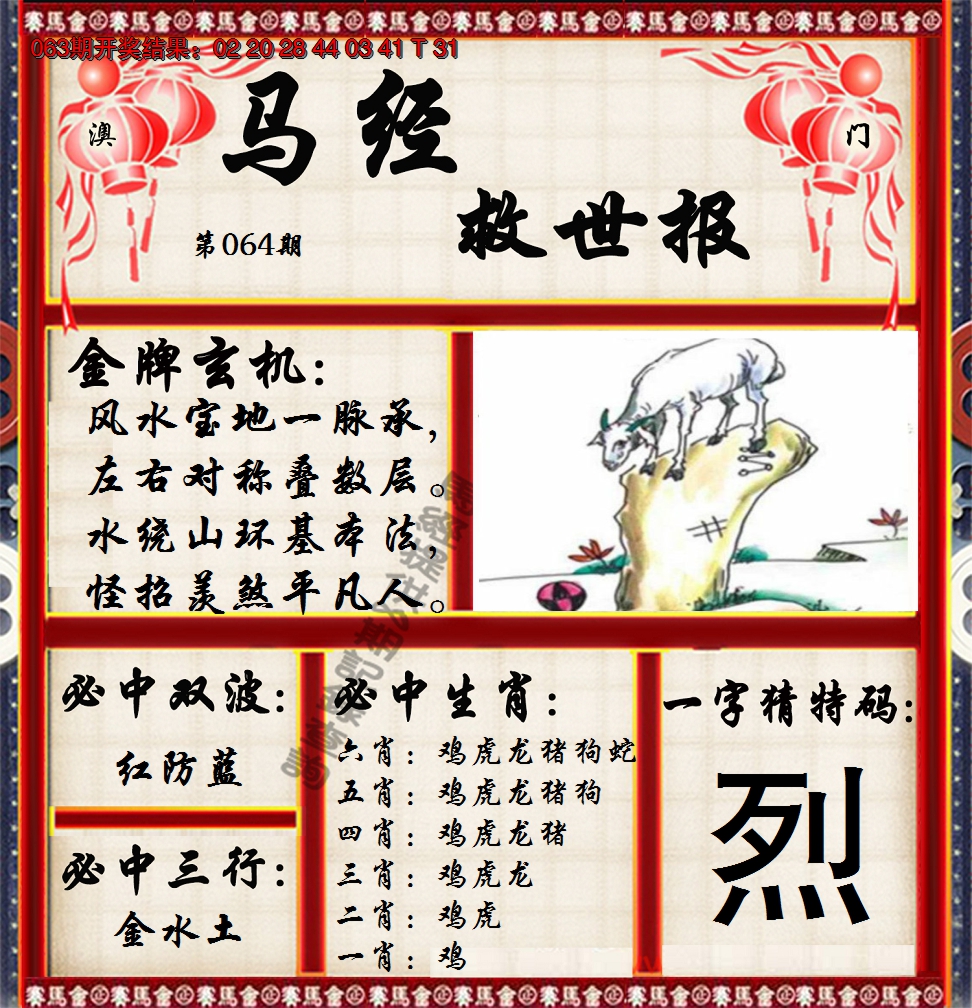 賽馬會賽馬會賽馬會賽馬會賽馬會賽馬會賽馬會賽馬會
063期开奖结果：02 20 28 44 03 41 T 31
澳
门
马经
救世报
第064期
金牌玄机：
风水宝地一脉承，
左右对称叠数层。
水绕山环基本法，
怪招羡煞平凡人。
必中双波：
红防蓝
必中三行：
金水土
必中生肖：
六肖：鸡虎龙猪狗蛇
五肖：鸡虎龙猪狗
四肖：鸡虎龙猪
三肖：鸡虎龙
二肖：鸡虎
一肖：鸡
一字猜特码：
烈